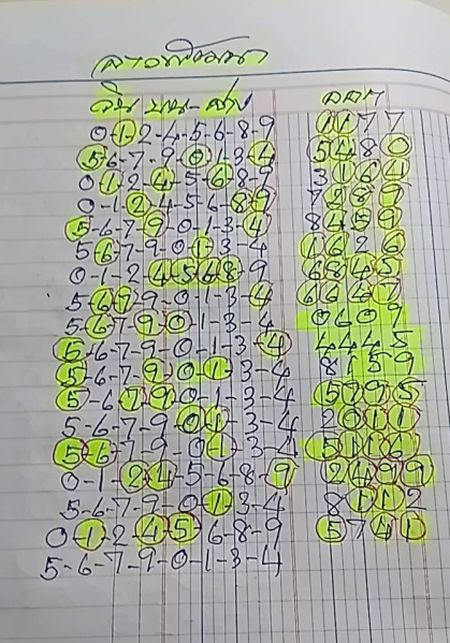 ลาวพัฒนา
วิน บน-ล่าง ออก
0-1-2-4-5-6-8-9 1177
5-6-7-9-0-1-3-4 5480
0-1-2-4-5-6-8-9 3164
0-1-2-4-5-6-8-9 7289
5-6-7-9-0-1-3-4 8459
5-6-7-9-0-1-3-4 1626
0-1-2-4-5-6-8-9 6845
5-6-7-9-0-1-3-4 6647
5-6-7-9-0-1-3-4 0609
5-6-7-9-0-1-3-4 4445
5-6-7-9-0-1-3-4 8159
5-6-7-9-0-1-3-4 5795
5-6-7-9-0-1-3-4 2011
5-6-7-9-0-1-3-4 5116
0-1-2-4-5-6-8-9 2499
5-6-7-9-0-1-3-4 8112
0-1-2-4-5-6-8-9 5741
5-6-7-9-0-1-3-4